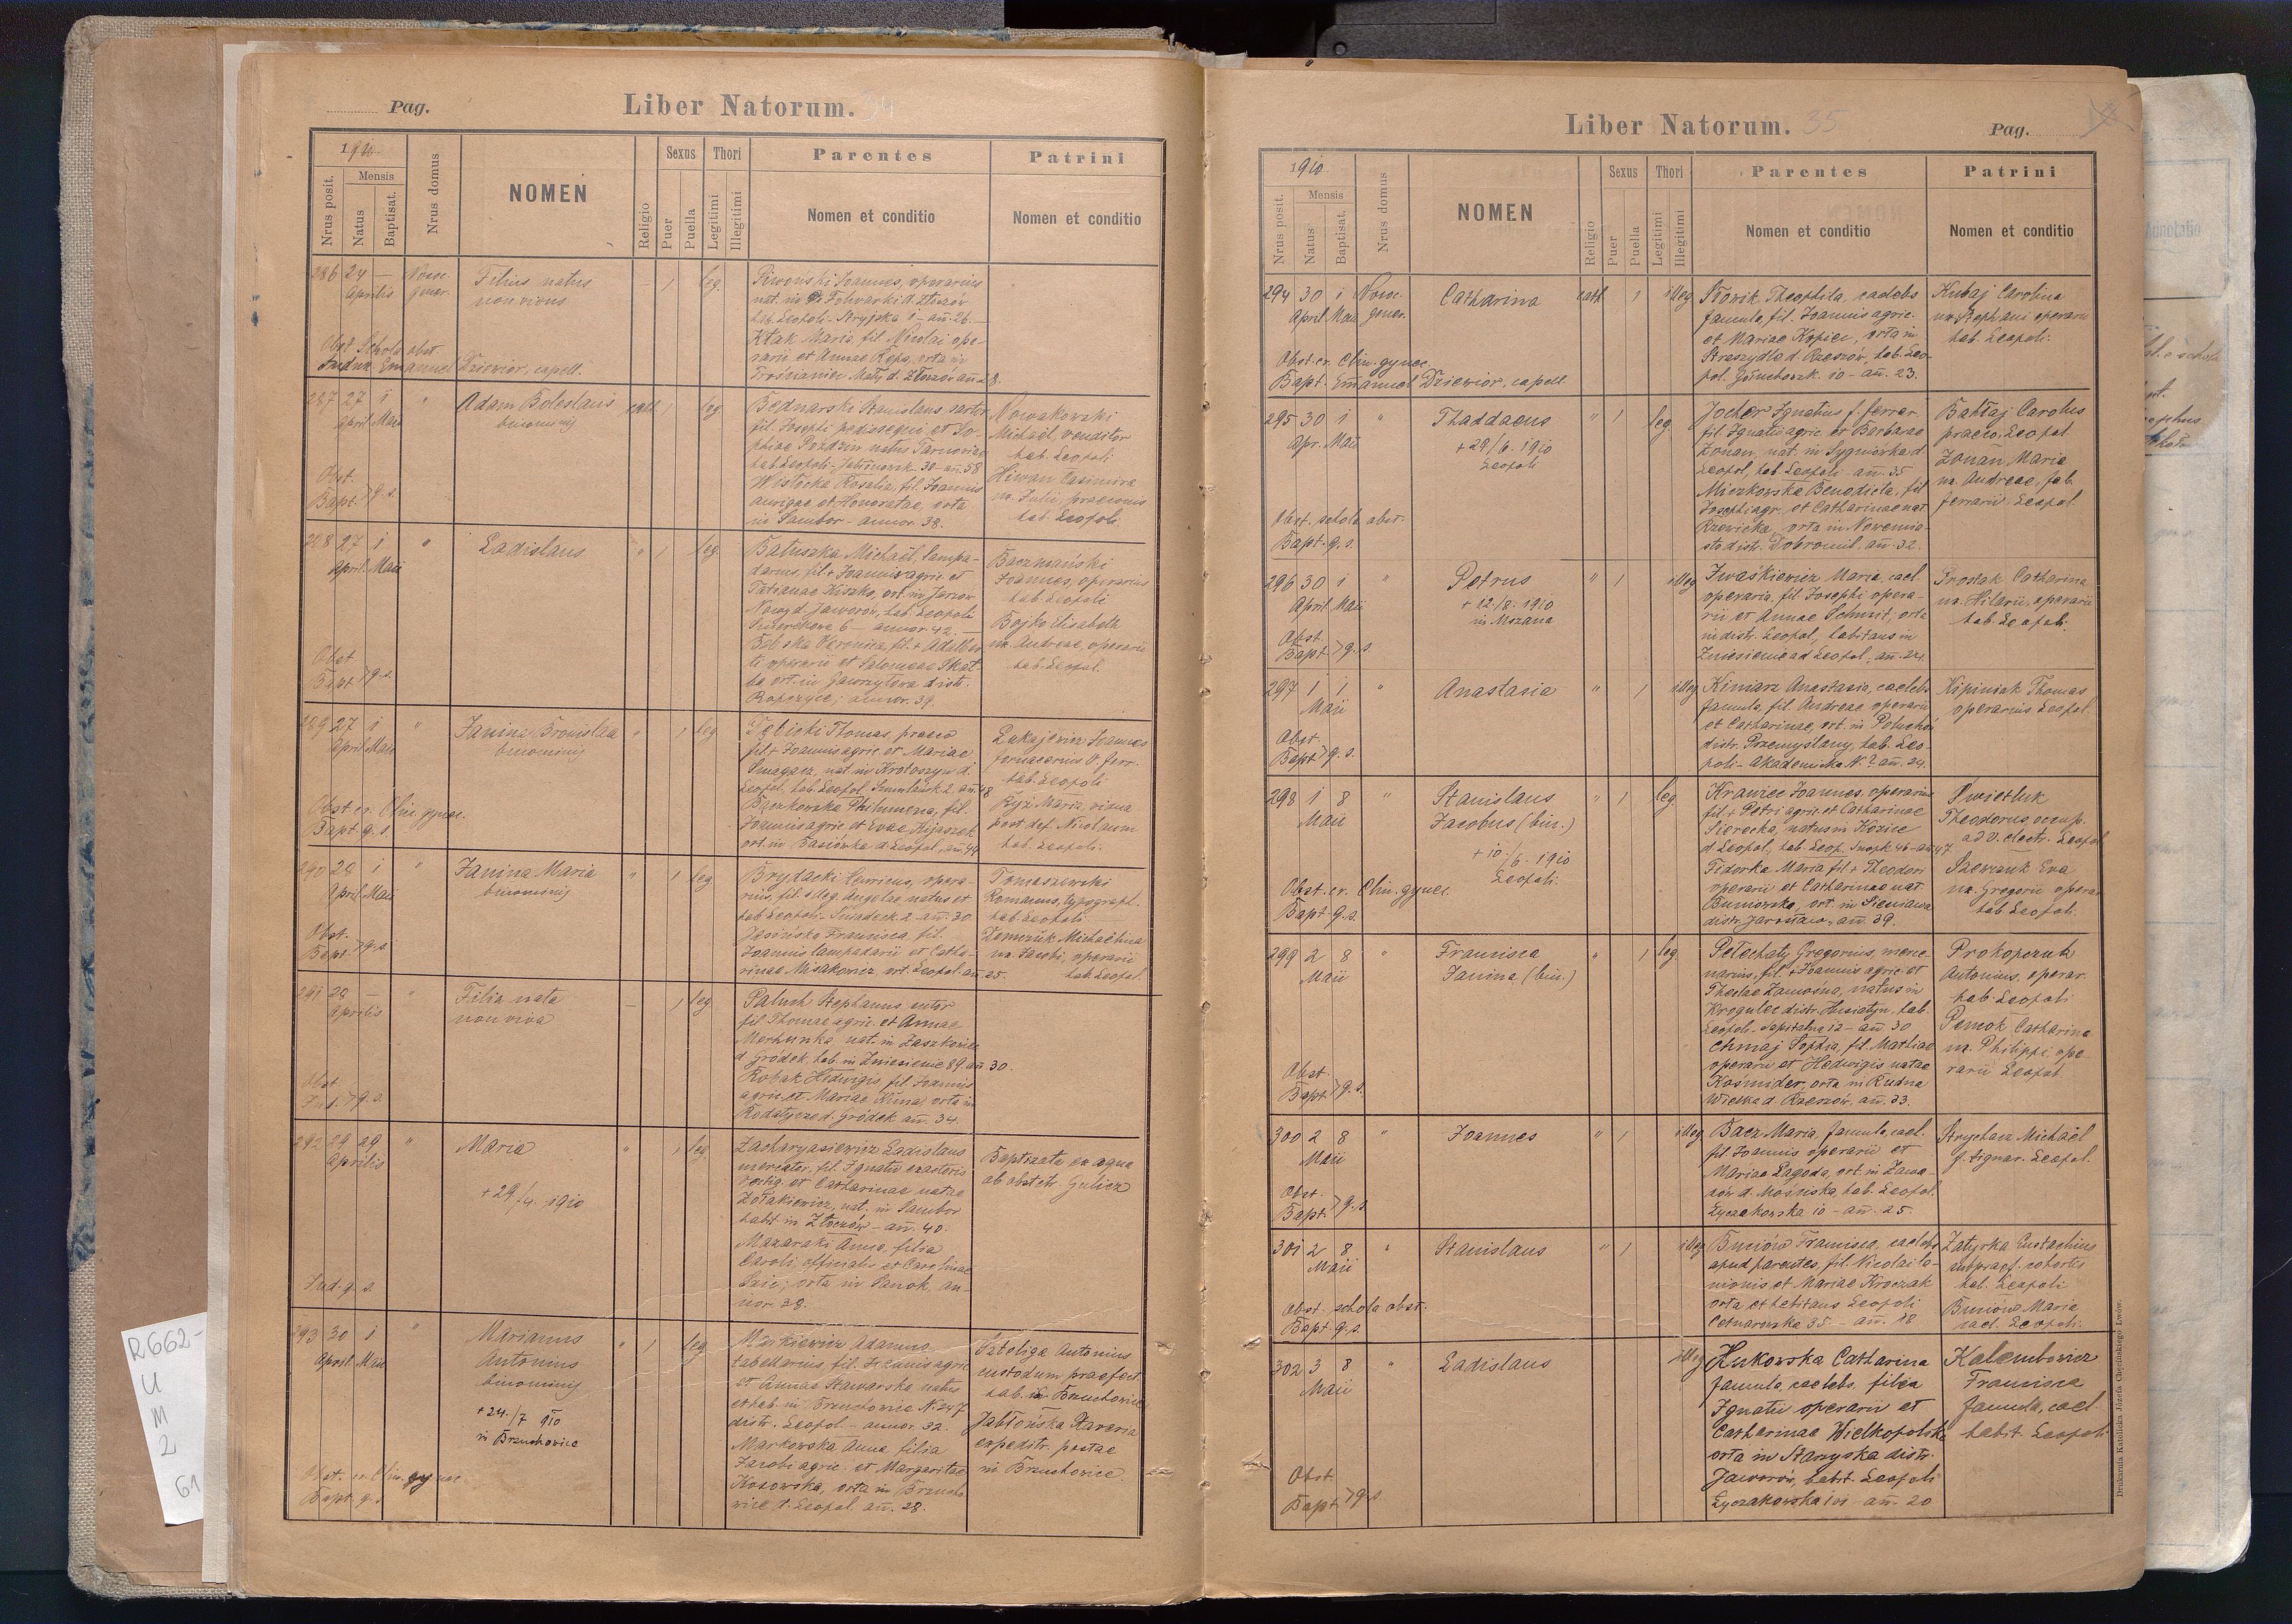 Pag.
Liber Natorum. 34
1910
Nrus posit.
Mensis
Natus
Baptisat.
Nrus domus
NOMEN
Religio
Sexus
Puer
Puella
Thori
Legitimi
Illegitimi
Parentes
Nomen et conditio
Patrini
Nomen et conditio
286 24 —
Aprilis
Filius natus
non vivus
leg.
Joannes, operarius
hab. Leopoli - Stryjska 1 - an. 26.
Maria, fil. Nicolai ope-
rarii et Annae
Obst. Schola obst.
Emanuel Dziewior, capell.
287 27 1
April. Maii
Adam Boleslaus
binominis
cath. 1 leg.
Bednarski Stanislaus, sartor
fil. Josephi pedissequi et So-
phiae natus Tarnoviae
hab. Leopoli - 38 - an. 58
Wisłocka Rosalia, fil. Joannis
aurigae et Honoratae, orta
in Sambor - annor. 38.
Nowakowski
Michaël, venditor
hab. Leopoli
Casimira
hab. Leopoli
Obst.
Bapt. q. s.
288 27 1
April. Maii
Ladislaus
" 1 leg.
Michaël lampa-
darius, fil. + Joannis agric. et
Tatianae
d. Jaworów, hab. Leopoli
6 - annor. 42.
Veronica, fil. + Adalber-
ti operarii et Salomeae
distr.
Ropczyce, annor. 39.
Joannes, operarius
hab. Leopoli
Bojko Elisabeth
ux. Andreae, operarii
hab. Leopol.
Obst.
Bapt. q. s.
289 27 1
April. Maii
Janina Bronislaa
binominis
" 1 leg.
Thomas, praeco
fil. + Joannis agric. et Mariae
Smagacz, nat. in Krotoszyn d.
Leopol. hab. Leopol. 2. an. 48
Baczkowska Philumena, fil.
Joannis agric. et Evae Kijaszek
ort. in Basiówka d. Leopol., an. 44
Łukajewicz Joannes
hab. Leopoli
Maria, vidua
post def. Nicolaum
hab. Leopoli.
Obst. ex Clin. gynec.
Bapt. q. s.
290 28 1
April. Maii
Janina Maria
binominis
" 1 leg.
Brydacki Henricus, opera-
rius, fil. illeg. Angelae natus et
hab. Leopoli - 2 - an. 30
Francisca, fil.
Joannis lampadarii et Catha-
rinae Misakowicz, ort. Leopol. an. 25.
Tomaszewski
Romanus, typograph.
hab. Leopoli
Michaëlina
ux. Jacobi, operarii
hab. Leopol.
Obst.
Bapt. q. s.
291 29 —
Aprilis
Filia nata
non viva
— 1 leg.
Paluch Stephanus, sutor
fil. Thomae agric. et Annae
nat. in Zaszkowice
d. Gródek, hab. in Zniesienie 89. an. 30.
Robak Hedwigis, fil. Joannis
agric. et Mariae Klima, orta in
Rodatycze d. Gródek an. 34.
Obst.
292 29 29
Aprilis
Maria
+ 29/4. 1910
" 1 leg.
Zacharyasiewicz Ladislaus
mercator, fil. Ignatii exactoris
vectig. et Catharinae natae
nat. in Sambor
habit. in Złoczów - an. 40.
Mazaraki Anna, filia
Caroli, officialis et Carolinae
orta in Sanok, an-
nor. 28.
Baptizata ex aqua
ab obstetr. Gulicz
q. s.
293 30 1
April. Maii
Marianus
Antonius
binominis
+ 24./7 910
in Brzuchowice
" 1 leg.
Adamus,
tabellarius, fil. Joannis agric.
et Annae Stawarska natus
et hab. in Brzuchowice N. 247
distr. Leopol. - annor. 32.
Markowska Anna filia
Jacobi agric. et Margaritae
Kosowska, orta in Brzucho-
wice d. Leopol. an. 28.
Antonius
custodum praefect.
hab. in Brzuchowice
Jabłońska Xaveria
expeditr. postae
in Brzuchowice.
Obst. ex Clin. gynec.
Bapt. q. s.
R662-
U
M
2
61
Liber Natorum. 35
Pag.
1910
Nrus posit.
Mensis
Natus
Baptisat.
Nrus domus
NOMEN
Religio
Sexus
Puer
Puella
Thori
Legitimi
Illegitimi
Parentes
Nomen et conditio
Patrini
Nomen et conditio
294 30 1
April. Maii
Catharina
cath. 1 illeg.
Słowik Theophila, caelebs
famula, fil. Joannis agric.
et Mariae Kopiec, orta in
Straszydle d. Rzeszów, hab. Leo-
pol. 10 - an. 23.
Kubaj Carolina
ux. Stephani operarii
hab. Leopoli.
Obst. ex Clin. gynec.
Bapt. Emanuel Dziewior, capell.
295 30 1
Apr. Maii
Thaddaeus
+ 29/6. 1910
Leopoli
" 1 leg.
Jocher Ignatius f. ferrar.
fil. Ignatii agric. et Barbarae
Zonan, nat. in Sygniówka d.
Leopol, hab. Leopoli - an. 35
Mieczkowska Benedicta, fil.
Josephi agr. et Catharinae nat.
Rzewicka, orta in Nowemia-
sto distr. Dobromil, an. 32.
Bałtaj Carolus
praeco, Leopol.
Zonan Maria
ux. Andreae, fab.
ferrarii, Leopol.
Obst. schola obst.
Bapt. q. s.
296 30 1
April. Maii
Petrus
+ 12/8. 1910
in Mszana
" 1 illeg.
Iwaśkiewicz Maria, cael.
operaria, fil. Josephi opera-
rii et Annae Schmit, orta
in distr. Leopol, habitans in
Zniesienie ad Leopol, an. 24.
Prostak Catharina
ux. Hilarii, operarii
hab. Leopoli.
Obst.
Bapt. q. s.
297 1 1
Maii
Anastasia
" 1 illeg.
Anastasia, caelebs
famula, fil. Andreae operarii
et Catharinae, ort. in Poluchów
distr. Przemyslany, hab. Leo-
poli - Akademicka N. ? an. 24.
Kipiniak Thomas
operarius Leopol.
Obst.
Bapt. q. s.
298 1 8
Maii
Stanislaus
Jacobus (bin.)
+ 10/6. 1910
Leopoli
" 1 leg.
Krawiec Joannes, operarius
fil. + Petri agric. et Catharinae
Sierocka, natus in Kozice
d. Leopol, hab. Leop. 46 - an. 47.
Fedorka Maria fil. + Theodori
operarii et Catharinae nat.
Buniowska, ort. in Sieniawa
distr. Jarosław, an. 39.
Theodorus, occup.
ad v. electr. Leopol
Szewczuk Eva
ux. Gregorii operar.
hab. Leopoli.
Obst. ex Clin. gynec.
Bapt. q. s.
299 2 8
Maii
Francisca
Janina (bin.)
" 1 leg.
Pełechaty Gregorius, merce-
narius, fil. + Joannis agric. et
Theclae natus in
Krogulec distr. Husiatyn, hab.
Leopoli - 12 - an. 30
Chmaj Sophia, fil. Mathiae
operarii et Hedwigis natae
Kosmider, orta in Rudna
Wielka d. Rzeszów, an. 33.
Prokopczuk
Antonius, operar.
hab. Leopoli
Catharina
ux. Philippi, ope-
rarii Leopol
Obst.
Bapt. q. s.
300 2 8
Maii
Joannes
" 1 illeg.
Bacz Maria, famula, cael.
fil. Joannis operarii et
Mariae Lagoda, ort. in
d. Mościska, hab. Leopol.
Łyczakowska 10 - an. 25.
Michaël
f. lignar. Leopol.
Obst.
Bapt. q. s.
301 2 8
Maii
Stanislaus
" 1 illeg.
Francisca, caelebs
apud parentes, fil. Nicolai
et Mariae Kroczak
orta et habitans Leopoli
Cetnarowska 35 - an. 18
Zatyrka Eustachius
subpraef. cohortis
hab. Leopoli
Maria
cael. Leopoli.
Obst. schola obst.
Bapt. q. s.
302 3 8
Maii
Ladislaus
illeg.
Hukowska Catharina
famula, caelebs, filia
Ignatii operarii et
Catharinae Wielkopolska
orta in Starzyska distr.
Jaworów, habit. Leopoli
Łyczakowska 101 - an. 20
Kalembowicz
Francisca
famula, cael.
habit. Leopoli
Obst.
Bapt. q. s.
Drukarnia Katolicka Józefa Chęcińskiego Lwów.